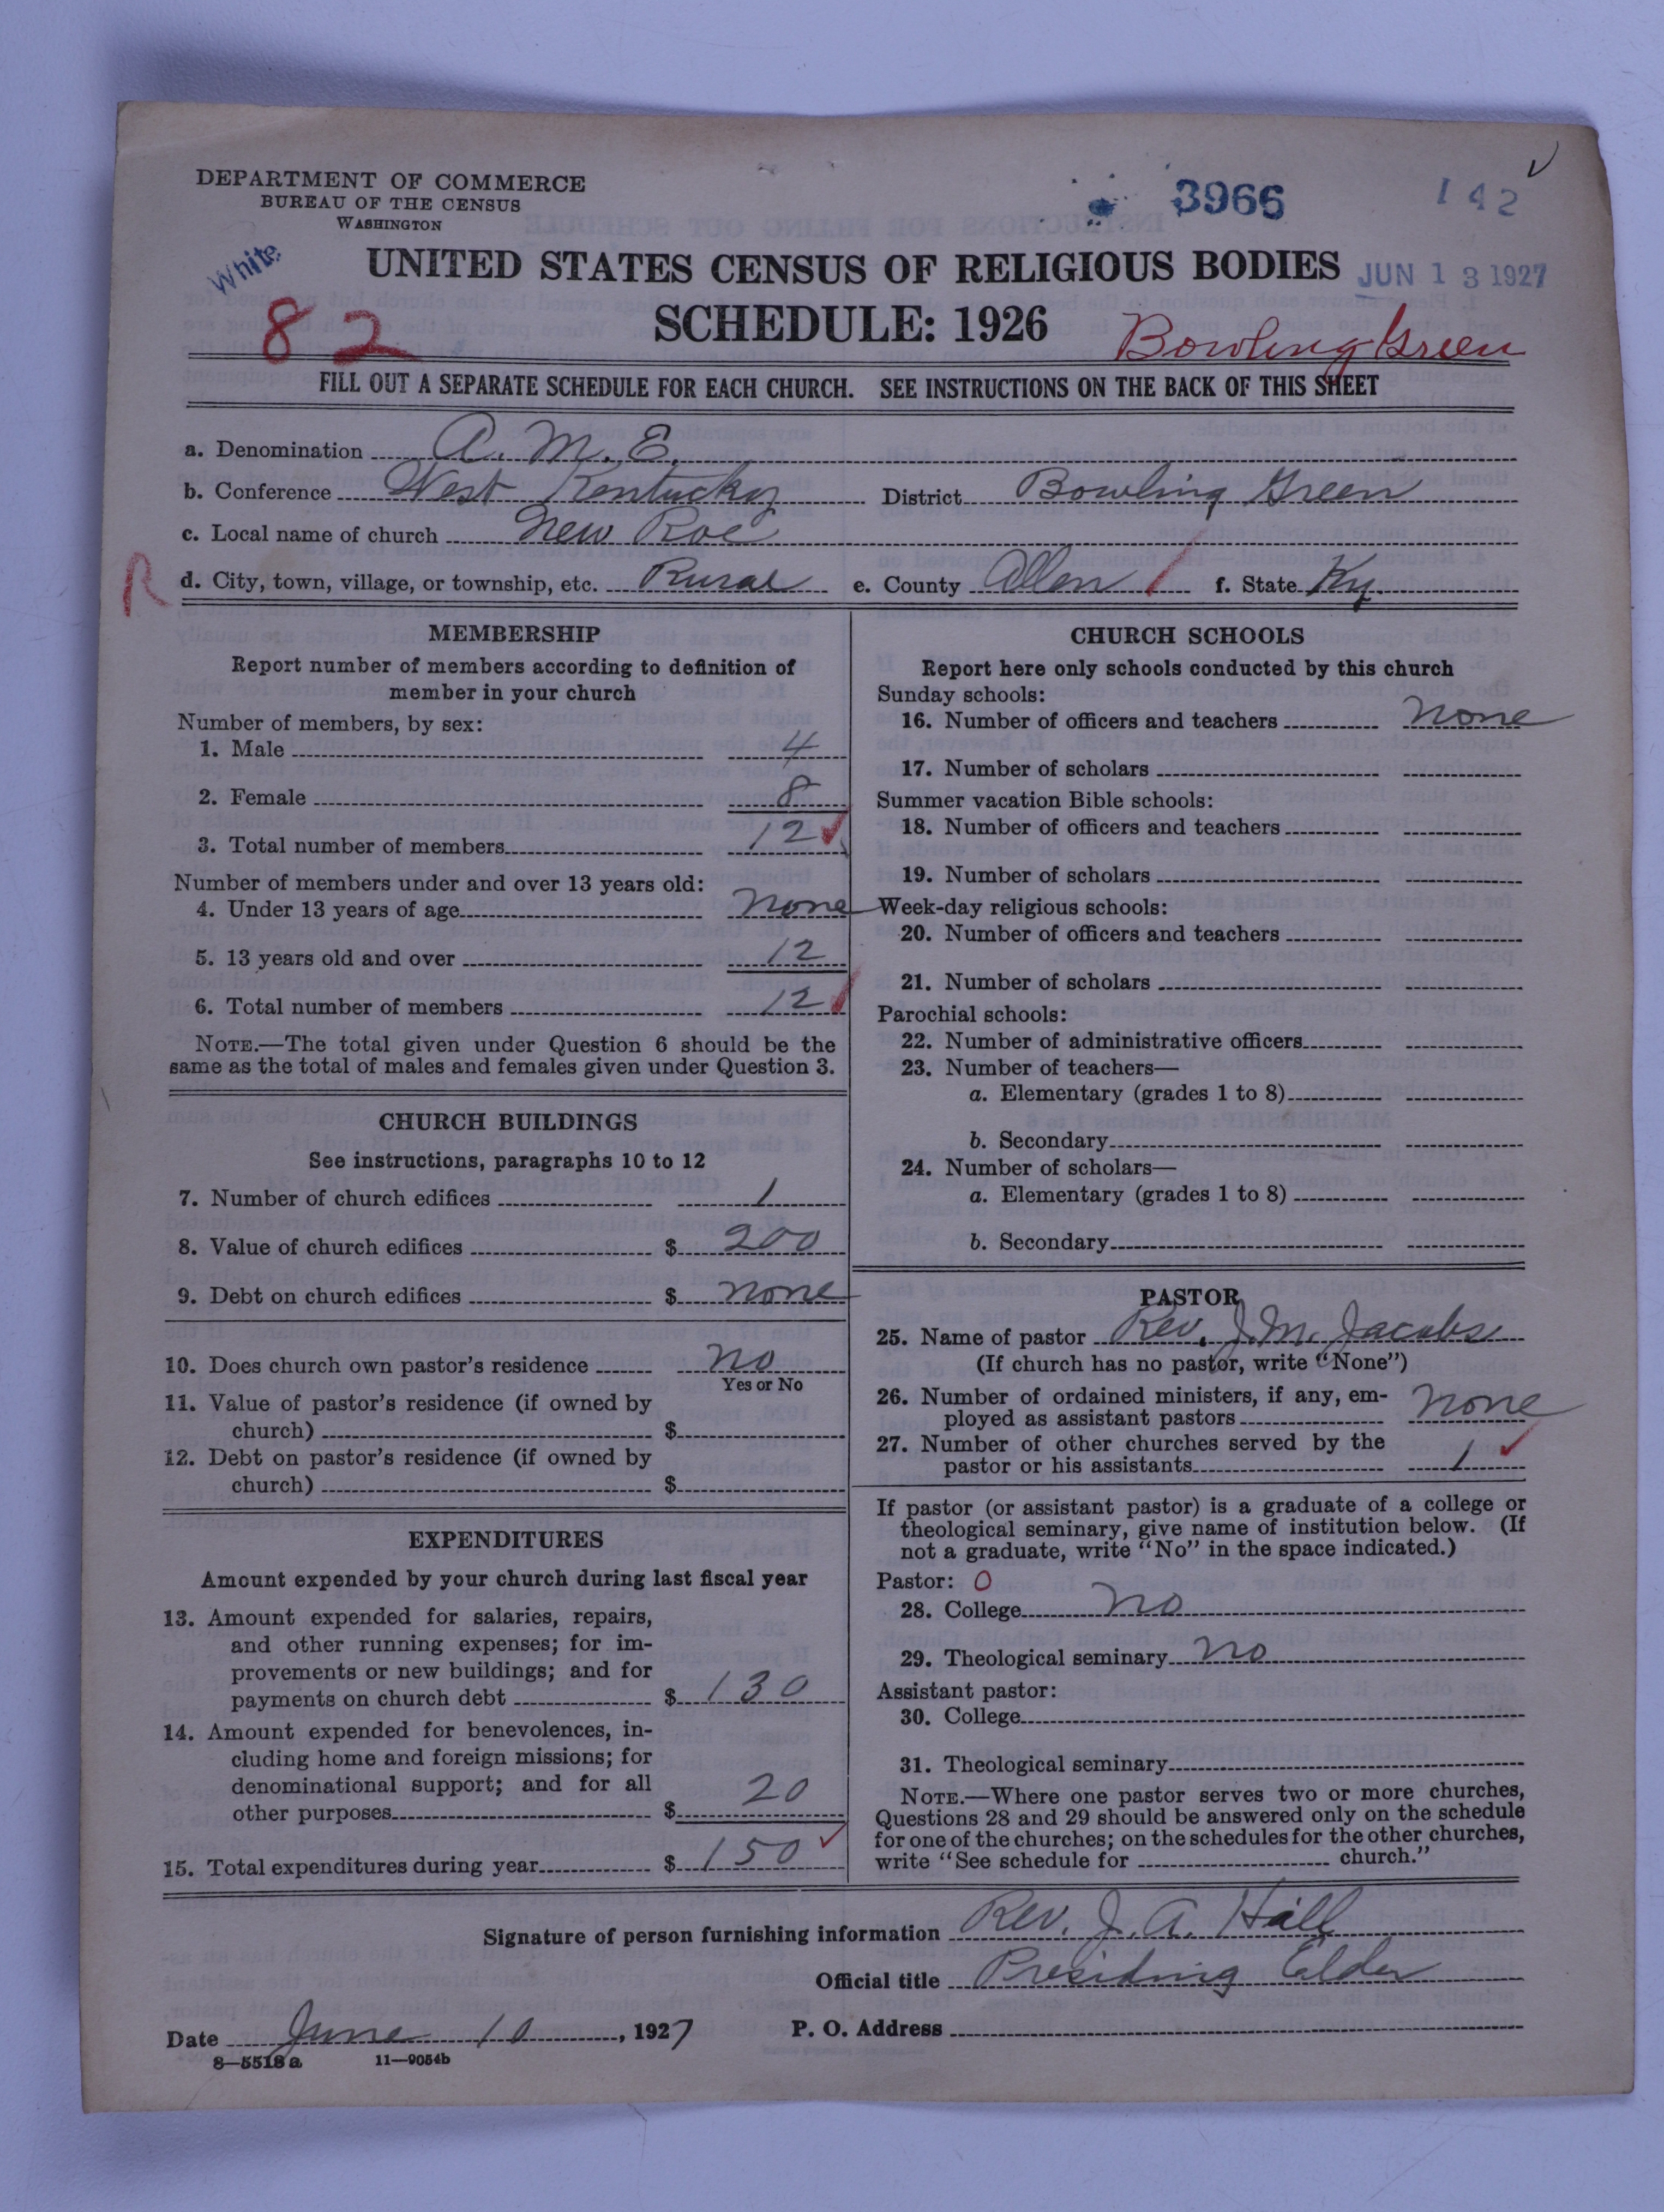 DEPARTMENT OF COMMERCE
BUREAU OF THE CENSUS
WASHINGTON
3966
142
White
UNITED STATES CENSUS OF RELIGIOUS BODIES
JUN 13 1927
82
SCHEDULE: 1926
Bowling Green
FILL OUT A SEPARATE SCHEDULE FOR EACH CHURCH. SEE INSTRUCTIONS ON THE BACK OF THIS SHEET
a. Denomination A. M. E.
b. Conference West Kentucky District Bowling Green
c. Local name of church New Roe
R
d. City, town, village, or township, etc. Rural e. County Allen f. State Ky.
MEMBERSHIP
Report number of members according to definition of
member in your church
Number of members, by sex:
1. Male 4
2. Female 8
3. Total number of members 12
Number of members under and over 13 years old:
4. Under 13 years of age none
5. 13 years old and over 12
6. Total number of members 12
NOTE.—The total given under Question 6 should be the
same as the total of males and females given under Question 3.
CHURCH BUILDINGS
See instructions, paragraphs 10 to 12
7. Number of church edifices 1
8. Value of church edifices $ 200
9. Debt on church edifices $ none
10. Does church own pastor's residence no
Yes or No
11. Value of pastor's residence (if owned by
church) $
12. Debt on pastor's residence (if owned by
church) $
EXPENDITURES
Amount expended by your church during last fiscal year
13. Amount expended for salaries, repairs,
and other running expenses; for im-
provements or new buildings; and for
payments on church debt $ 130
14. Amount expended for benevolences, in-
cluding home and foreign missions; for
denominational support; and for all
other purposes $ 20
15. Total expenditures during year $ 150
CHURCH SCHOOLS
Report here only schools conducted by this church
Sunday schools:
16. Number of officers and teachers none
17. Number of scholars
Summer vacation Bible schools:
18. Number of officers and teachers
19. Number of scholars
Week-day religious schools:
20. Number of officers and teachers
21. Number of scholars
Parochial schools:
22. Number of administrative officers
23. Number of teachers—
a. Elementary (grades 1 to 8)
b. Secondary
24. Number of scholars—
a. Elementary (grades 1 to 8)
b. Secondary
PASTOR
25. Name of pastor Rev. J. M. Jacobs
(If church has no pastor, write "None")
26. Number of ordained ministers, if any, em-
ployed as assistant pastors none
27. Number of other churches served by the
pastor or his assistants 1
If pastor (or assistant pastor) is a graduate of a college or
theological seminary, give name of institution below. (If
not a graduate, write "No" in the space indicated.)
Pastor: 0
28. College no
29. Theological seminary no
Assistant pastor:
30. College
31. Theological seminary
NOTE.—Where one pastor serves two or more churches,
Questions 28 and 29 should be answered only on the schedule
for one of the churches; on the schedules for the other churches,
write "See schedule for church."
Signature of person furnishing information Rev. J. A. Hall
Official title Presiding Elder
Date June 10, 1927 P. O. Address
8—5518 a 11—9054b